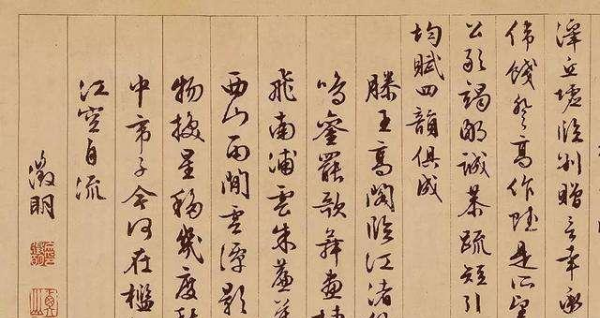 澤丘墟臨別贈言幸承
偉餞登高作賦是所望
公敢竭鄙誠恭疏短引
均賦四韻俱成
滕王高閣臨江渚
鳴鑾罷歌舞畫棟
飛南浦雲朱簾
西山雨閒雲潭影
物換星移幾度秋
中帝子今何在檻
江空自流
徵明